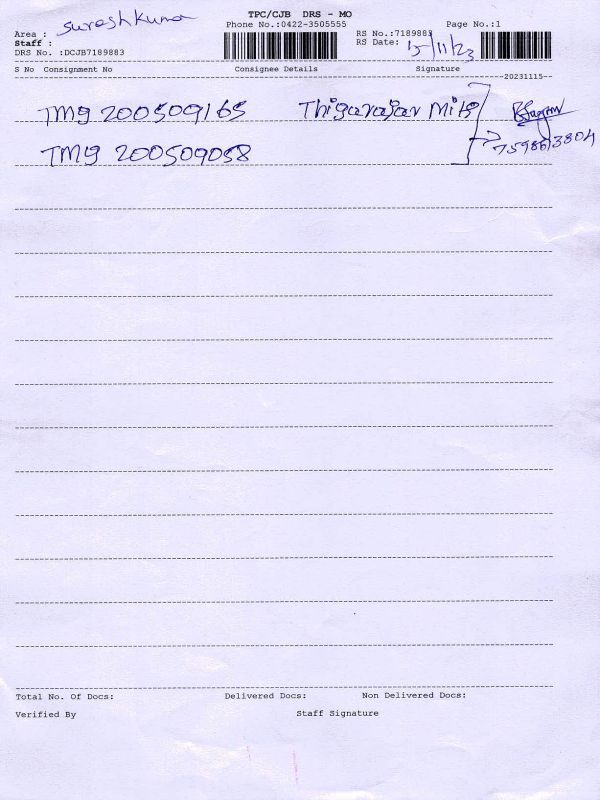 TPC/CJB DRS - MO
Phone No.:0422-3505555
Page No.:1
Area : Sureshkumar
RS No.:7189883
Staff :
RS Date: 15/11/23
DRS No. :DCJB7189883
S No Consignment No Consignee Details Signature
20231115
TM9 200509165 Thigarajar Mills
TM9 200509058 7598613804
Total No. Of Docs: Delivered Docs: Non Delivered Docs:
Verified By Staff Signature